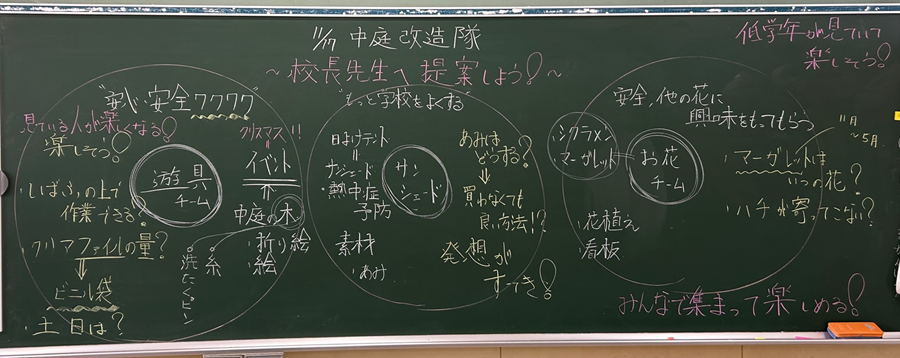 11/17 中庭改造隊
〜校長先生へ提案しよう!〜
低学年が見ていて
楽しそう!
"安心・安全ワクワク"
見ている人が楽しくなる!
楽しそう!
遊具
チーム
・しばふの上で
作業できる?
・クリアファイルの量?
⇓
ビニル袋
・土日は?
クリスマス!!
イベント
中庭の木
・折り絵
・絵
・糸
・洗たくピン
"もっと学校をよくする"
日よけテント
サンシェード
熱中症
予防
素材
・あみ
サン
シェード
あみは
どうする?
⇓
買わなくても
良い方法!?
発想が
すてき!
安全、他の花に
興味をもってもらう
・シクラメン
・マーガレット
お花
チーム
・花植え
・看板
11月
〜5月
・マーガレットは
いつの花?
・ハチが寄ってこない?
みんなで集まって楽しめる!